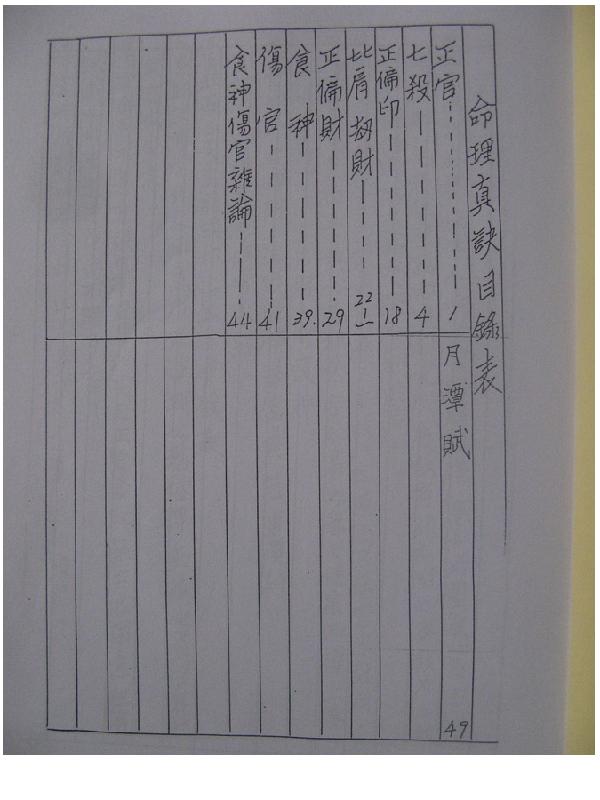 命理真訣目錄表
正官 1
七殺 4
正偏印 18
比肩劫財 22
正偏財 29
食神 39
傷官 41
食神傷官雜論 44
月潭賦 49